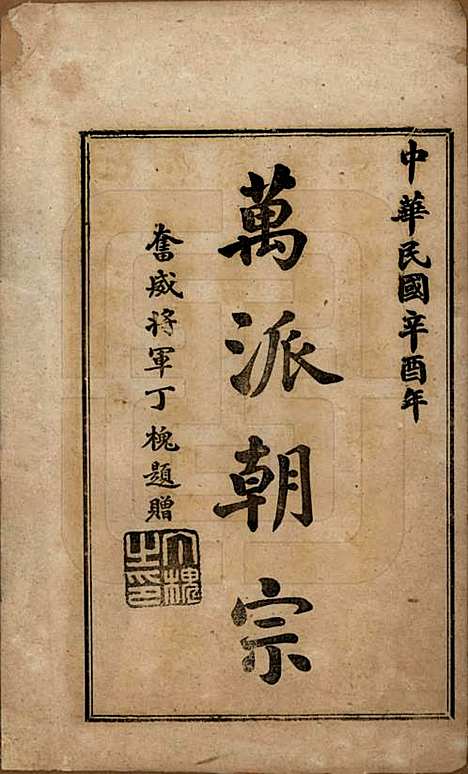 中華民國辛酉年
萬派朝宗
奮威將軍丁槐題贈
丁槐之印